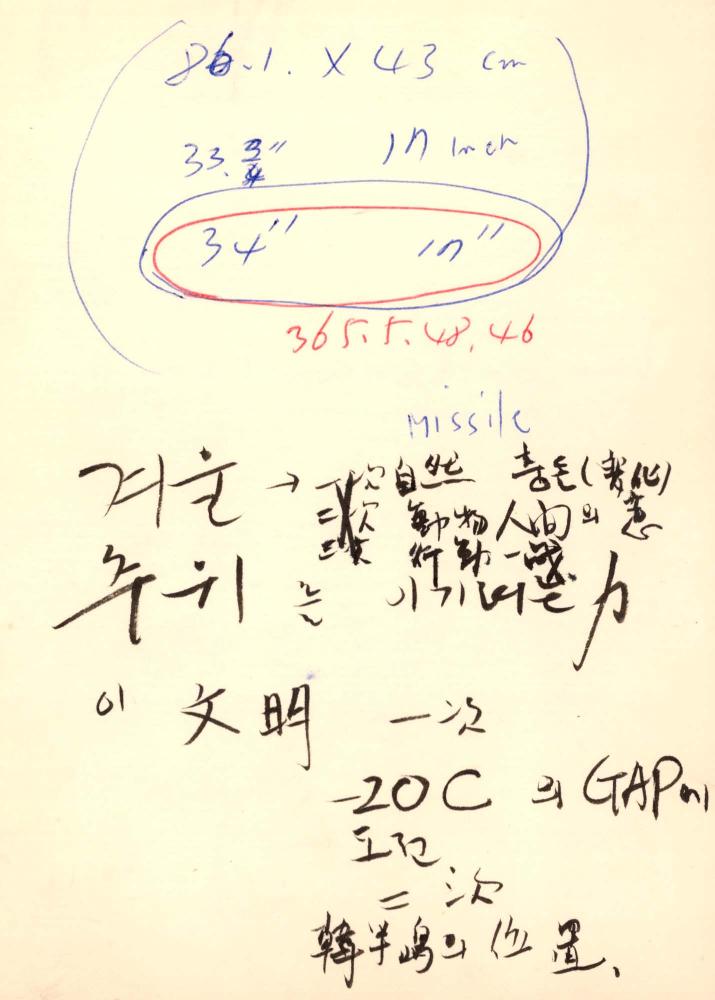 86.1. X 43 cm
33. 3/4" 17 Inch
34" 17"
365.5.48.46
missile
겨울 → 一次 自然 충돌(変化)
二次 動物 人間의 意
三次 行動
추위 는 이기려는 力
이 文明 一次
-20C 의 GAP에
도전
二次
韓半嶋의 位置.